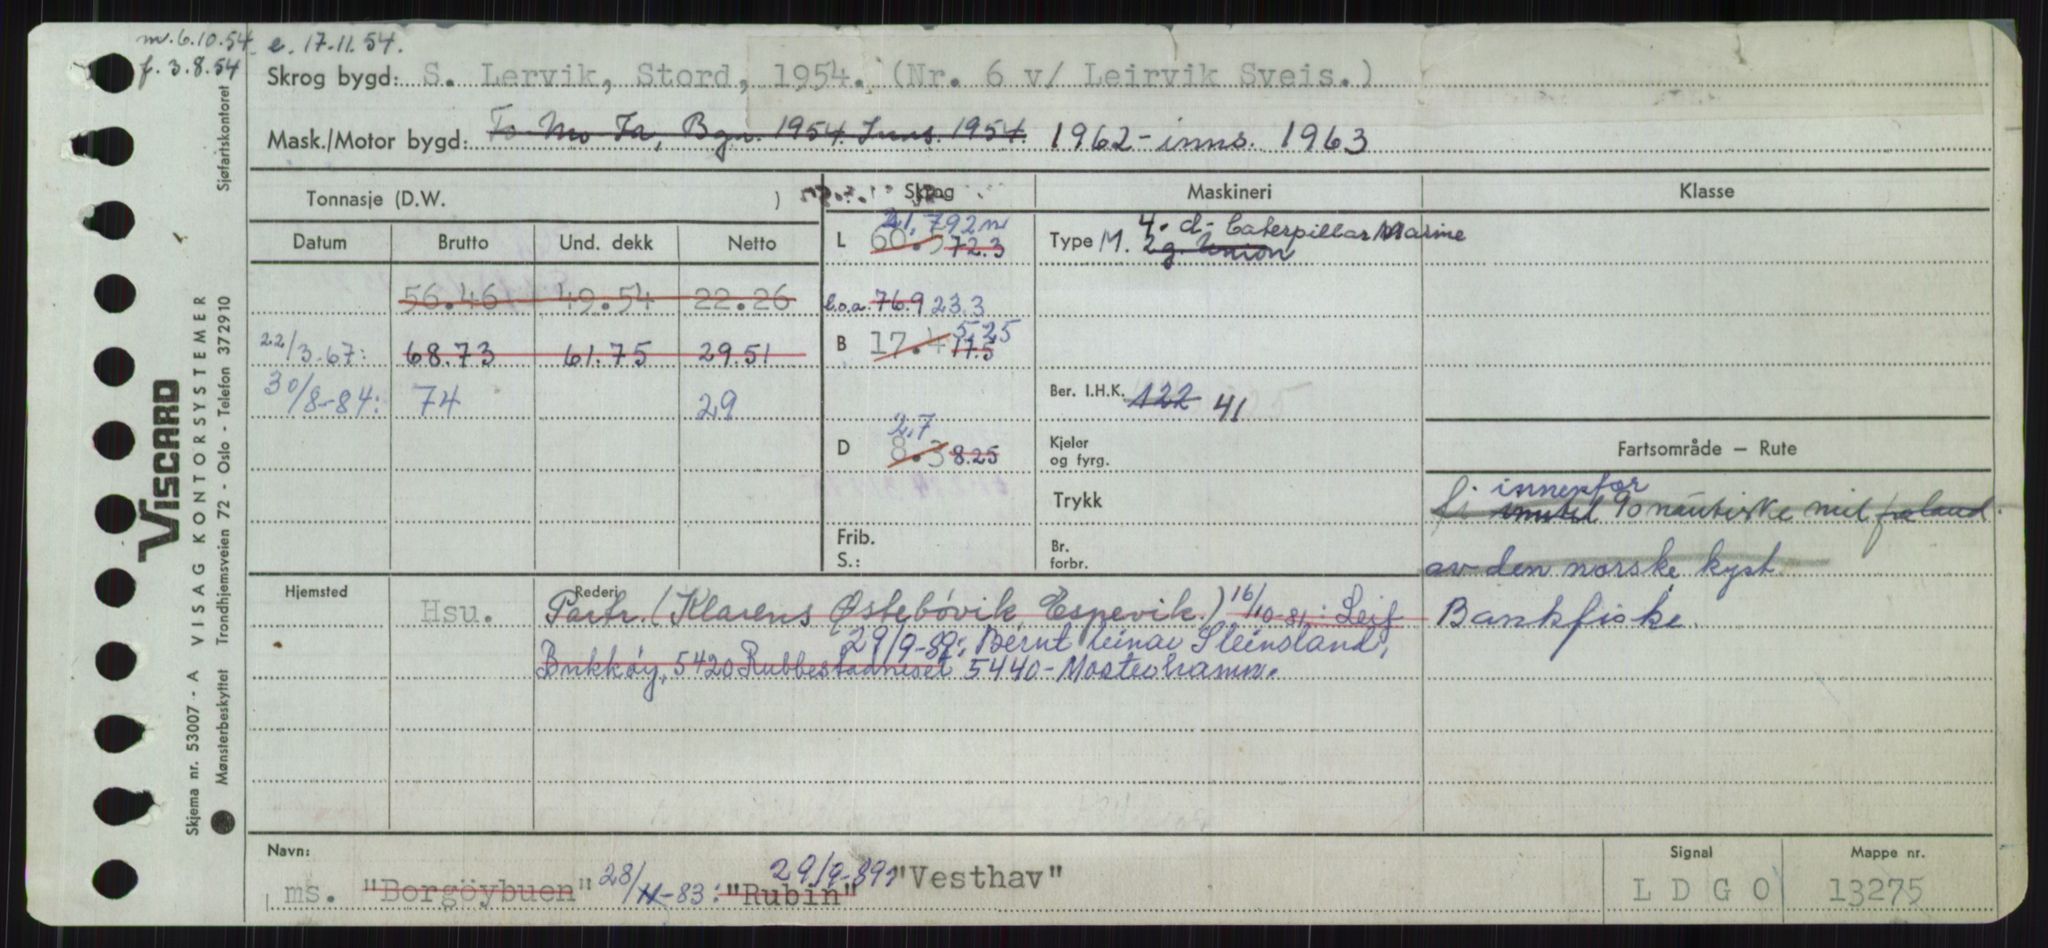 m. 6.10.54 e. 17.11.54.
f. 3.8.54
Skrog bygd: S. Lervik, Stord, 1954. (Nr. 6 v/ Leirvik Sveis.)
Mask./Motor bygd: To Mo Fa, Bgn. 1954. Inns. 1954. 1962 - inns. 1963
Tonnasje (D.W. ) Skrog Maskineri Klasse
Datum Brutto Und. dekk Netto
L 60.5 72.3 21,792 m
Type M. 2 g. Union 4. d- Caterpillar Marine
56.46 49.54 22.26
l.o.a. 76.9 23.3
22/3-67: 68.73 61.75 29.51
B 17.4 17.5 5,25
30/8-84: 74 29
Ber. I.H.K. 122 41
D 8.3 8.25 2,7
Kjeler
og fyrg.
Fartsområde — Rute
Trykk
fi inntil innenfor 90 nautiske mil fra land.
Frib.
S.:
Br.
forbr.
av den norske kyst.
Bankfiske.
Hjemsted Rederi
Hsu. Partr. (Klarens Østebövik, Espevik.) 16/10-81: Leif
29/9-89: Bernt Einar Steinsland,
Bukköy, 5420 Rubbestadneset 5440 - Mosterhamn.
Navn:
ms. "Borgöybuen" 28/11-83: "Rubin" 29/9-89: "Vesthav"
Signal
L D G O
Mappe nr.
13275
Sjøfartskontoret
VISCARD
VISAG KONTORSYSTEMER
Trondhjemsveien 72 - Oslo - Telefon 372910
Skjema nr. 53007 - A
Mønsterbeskyttet